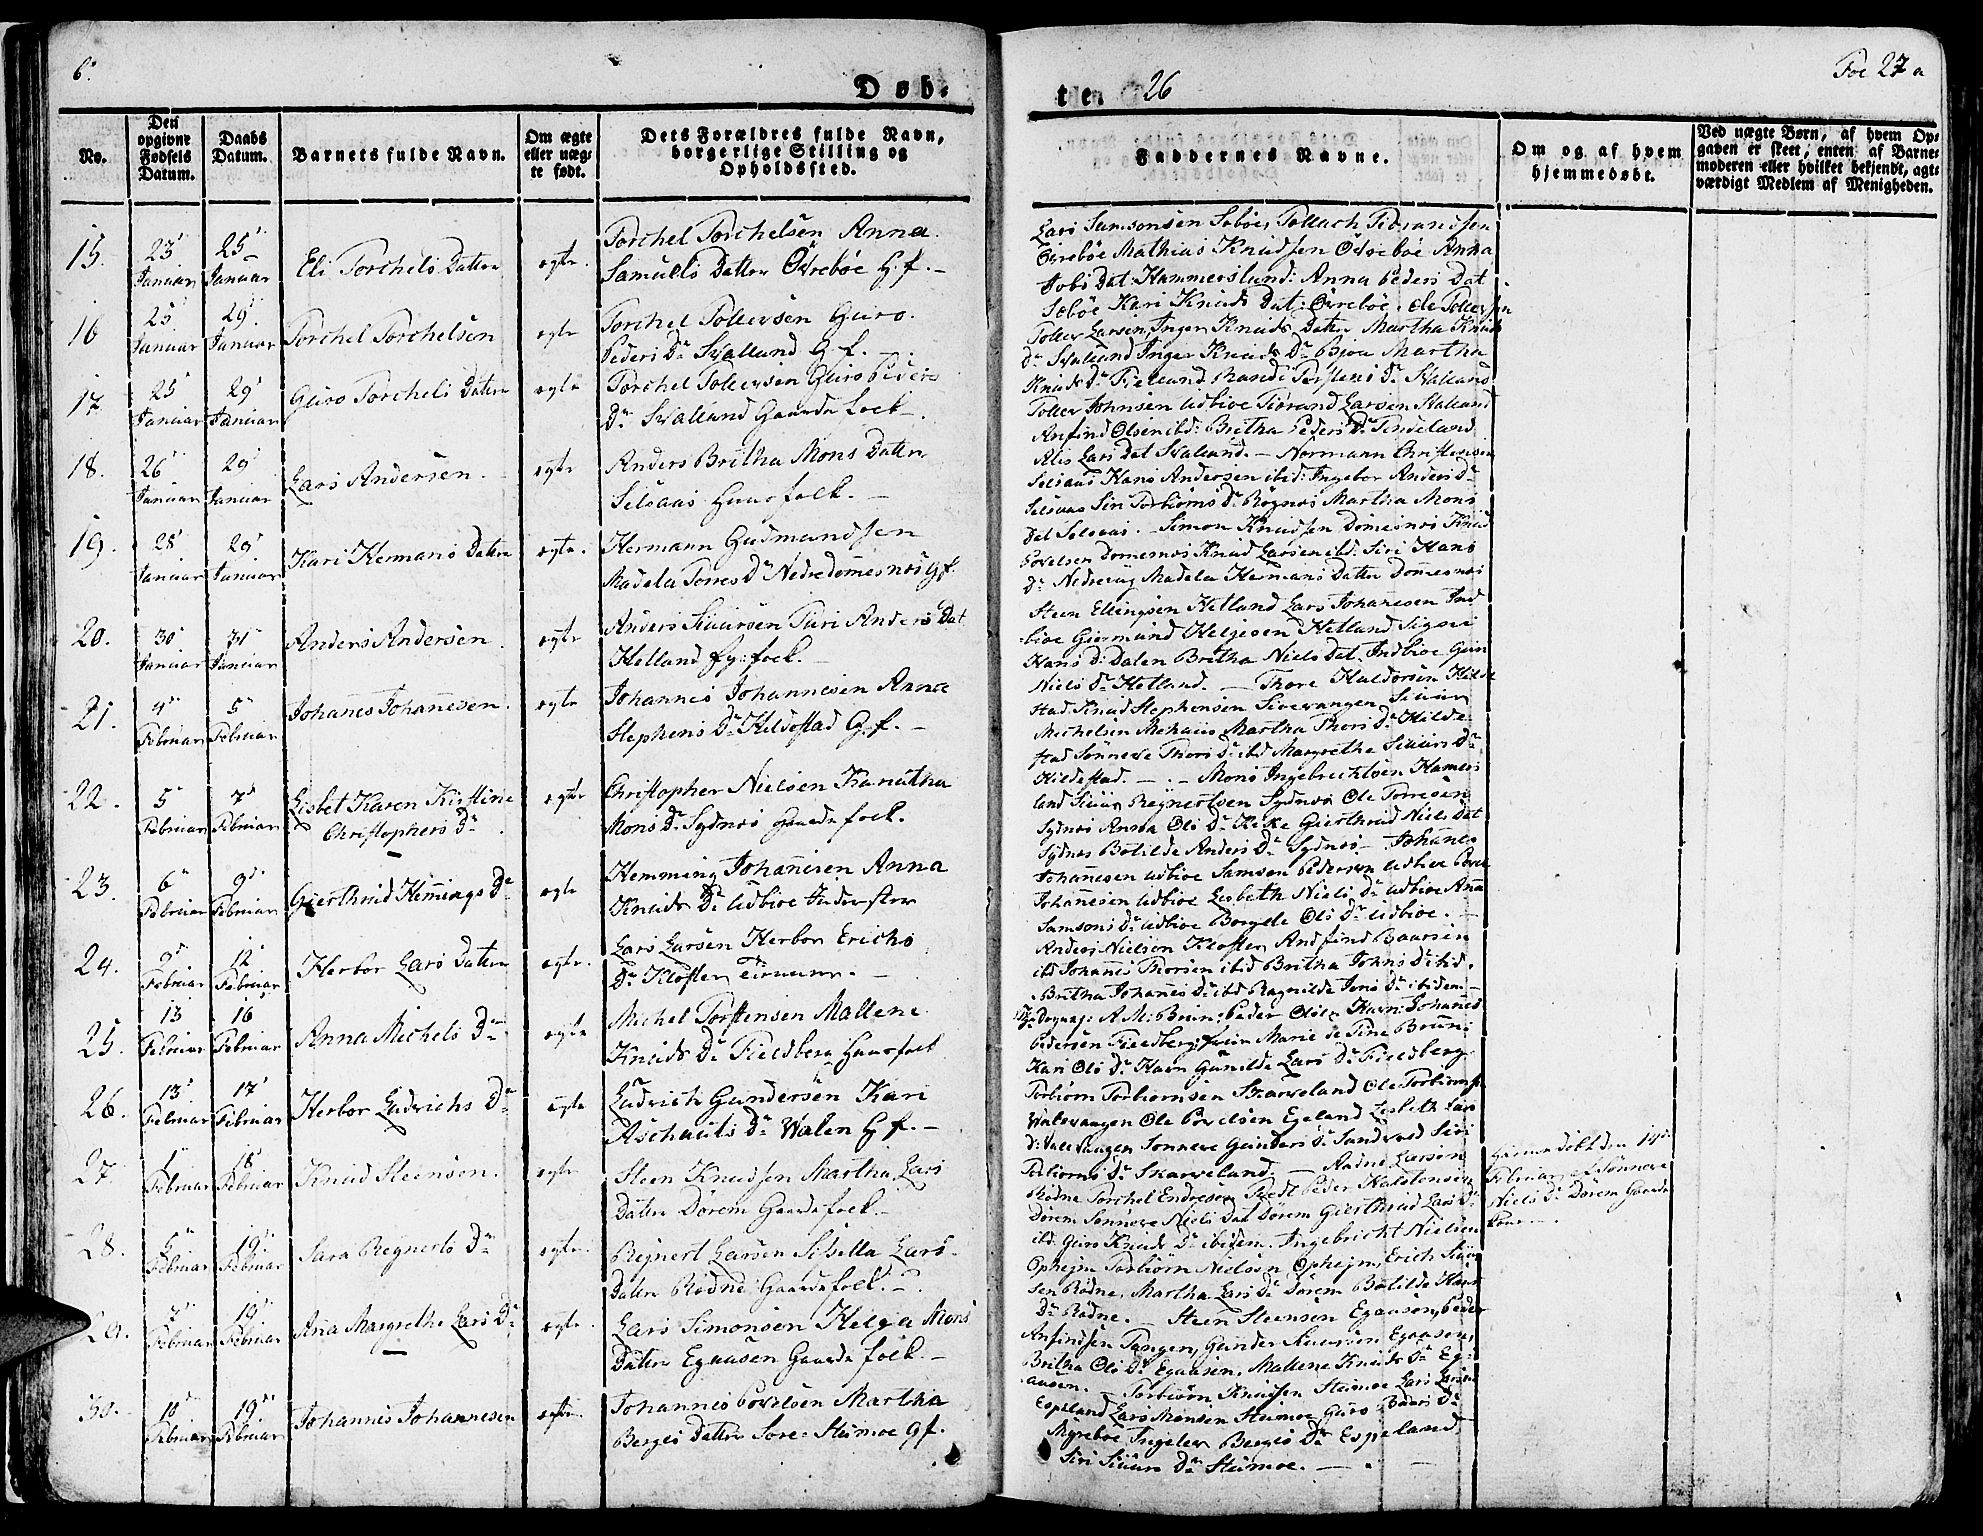 6.
Døb-
No.
Den opgivne Fødsels Datum.
Daabs Datum.
Barnets fulde Navn.
Om ægte eller uæg- te født.
Dets Forældres fulde Navn, borgerlige Stilling og Opholdssted.
15. 23 Januar 25 Januar Eli Torchels Datter ægte. Torchel Torchelsen Anna
Samuels Datter Øvrebøe G. f. -
16 25 Januar 29 Januar Torchel Torchelsen ægte Torchel Tollevsen Guro
Peders Dr Svalland G. f. -
17 25 Januar 29 Januar Guro Torchels Datter ægte Torchel Tollevsen Guro Peders
Dr Svalland Gaarde foelk.
18. 26 Januar 29 Januar Lars Andersen. ægte Anders Britha Mons Datter
Selsaas Huusfolk. -
19. 28 Januar 29 Januar Kari Hermans Datter ægte. Hermann Gudmundsen
Madela Torres Dr Nedre Domesnes G f.
20. 30 Januar 31 Januar Anders Andersen. ægte Anders Siursen Turi Anders Dat
Hetland
21. 4 Februar 5 Februar Johanes Johanesen. ægte Johannes Johannesen Anne
Stephens Dr Hildestad G. f. -
22. 5 Februar 7 Februar Lisbet Karen Kirstine
Christophers Dr ægte Christopher Nielsen Kanutha
Mons Dr Sydnes Gaardefolk.
23. 6 Februar 9 Februar Gierthrud Hemings Dr ægte Hemming Johannesen Anna
Knuds Dr Udbioe
24. 9 Februar 12 Februar Herbor Lars Datter ægte. Lars Larsen Herbor Erichs
Dr Kloster
25. 13 Februar 16 Februar Anna Michels Dr ægte Michel Torstensen Mallene
Knuds Dr Fieldberg Huusfolk
26. 13 Februar 17 Februar Herbor Ladrichs Dr ægte Ladrich Gundersen Kari
Aschauts Dr Walen G. f. -
27. 1 Februar 18 Februar Knud Steensen. ægte Steen Knudsen Martha Lars
Datter Dörem Gaardefolk. -
28. 5 Februar 19 Februar Sara Regnerts Dr ægte. Regnert Larsen Sissilla Lars
Datter Rødne Gaardefolk. -
29. 7 Februar 19 Februar Ana Margrethe Lars Dr ægte. Lars Simonsen Helga Mons
Datter Egaasen Gaarde folk. -
30. 10 Februar 19 Februar Johannes Johannesen ægte. Johannes Povelsen Martha
Berges Datter Sore-Steimoe G f.
ten 26
Foe 27 a
Faddernes Navne.
Om og af hvem hjemmedøbt.
Ved uægte Børn, af hvem Op- gaven er skeet, enten af Barne- moderen eller hvilket bekjendt, agt- værdigt Medlem af Menigheden.
Lars Samsonsen Sobøe, Tollach
Øvrebøe Mathias Knudsen Øvrebøe Anna
Jobs Dat: Hammerslund: Anna Peders Dat
Sobøe Kari Knuds Dat: Øvrebøe. Ole Tollevsen
Tollev Larsen, Inger Knuds Datter Martha Knuds
Dr Svalland Inger Knuds Dr Bjoe Martha
Knuds Dr Fielland Torstens Dr Svalland
Tollev Johnsen Udbioe Larsen Svalland
Anfind Olsen ibd: Britha Peders Dr
Alis Lars Dat Svaland. - Normann Christensen
Selsaas Hans Andersen ibid: Ingebor Anders Dr
Selsaas Siri Torbiorns Dr Martha Mons
Dat Selsaas. - Simon Knudsen Domesnes Knud
Povelsen Domesnes Knud Larsen ibd: Siri Hans
Dr Madela Hermans Datter Domesnes
Steen Ellingsen Hetland Lars Johannesen Ind
bioe Giermund Helgesen Hetland Sigri
Hans D: Dalen Britha Niels Dat. Indbioe Guri
Niels Dr Hetland. - Thore Haldorsen Hilde
stad Knud Stephensen Siuur
Michelsen Mehuus Martha Thors Dr Hilde-
stad Sønneve Thors Dr ibd Margrethe Siuurs Dr
Hildestad. - Mons Ingebrechtsen Hamers
land Siuur Regnertsen Sydnes Ole Torresen
Sydnes Anna Ols Dr Gierthrud Niels Dat
Sydnes Botilde Anders Dr Sydnes - Johanes
Johanesen Udbioe Samson Pedersen Udbioe Povel
Johanesen Udbioe Lisbeth Niels Dr Udbioe Ana
Samsons Dr Udbioe Borgele Ols Dr Udbioe. -
Anders Nielsen Kloster Andfind Baarsen
ibd Johanes Thorsen ibid Britha Johns Dr ibd.
Britha Johanes Dr ibd Ragnilde Jens Dr ibidem -
A M: Brun: Peder Havn: Johanes
Pedersen Fieldberg: Marie de Fine Brun:
Kari Ols Dr Havn Gunilde Lars Dr Fieldberg
Torbiorn Torbiornsen Skarveland Ole
Walevangen Ole Povelsen Egeland Lisbeth Lars
Dr Valevangen Sonneve Gunders Dr Sandved Siri
Torbiorns Dr Skarveland. - Aadne Larsen
Rødne Torchel Endresen Tvedt Peder Halstensen
Dörem Sonneve Niels Dat Dörem Gierthrud Lars Dr
ibd. Guro Knuds Dr ibidem. Ingebricht Nielsen
Ophejm Torbiorn Nielsen Ophejm, Erich Siuur
sen Rødne, Martha Lars Dr Dörem Botilde Hans
Dr Rødne. - Steen Steensen Egaasen, Peder
Anfindsen Tangen, Gunder Siuursen Egaasen,
Britha Ols Dr Egaasen, Mallene Knuds Dr Eg-
aasen. - Torbiorn Knudsen Steimoe Lars Larsen
Espeland Lars Monsen Steimoe Guro Baars Dr
Myreboe Ingelev Berges Dr Espeland,
Siri Siuurs Dr Steimoe. -
Februar, af Sønneve
Niels Dr Dörem Gaarde
kone -